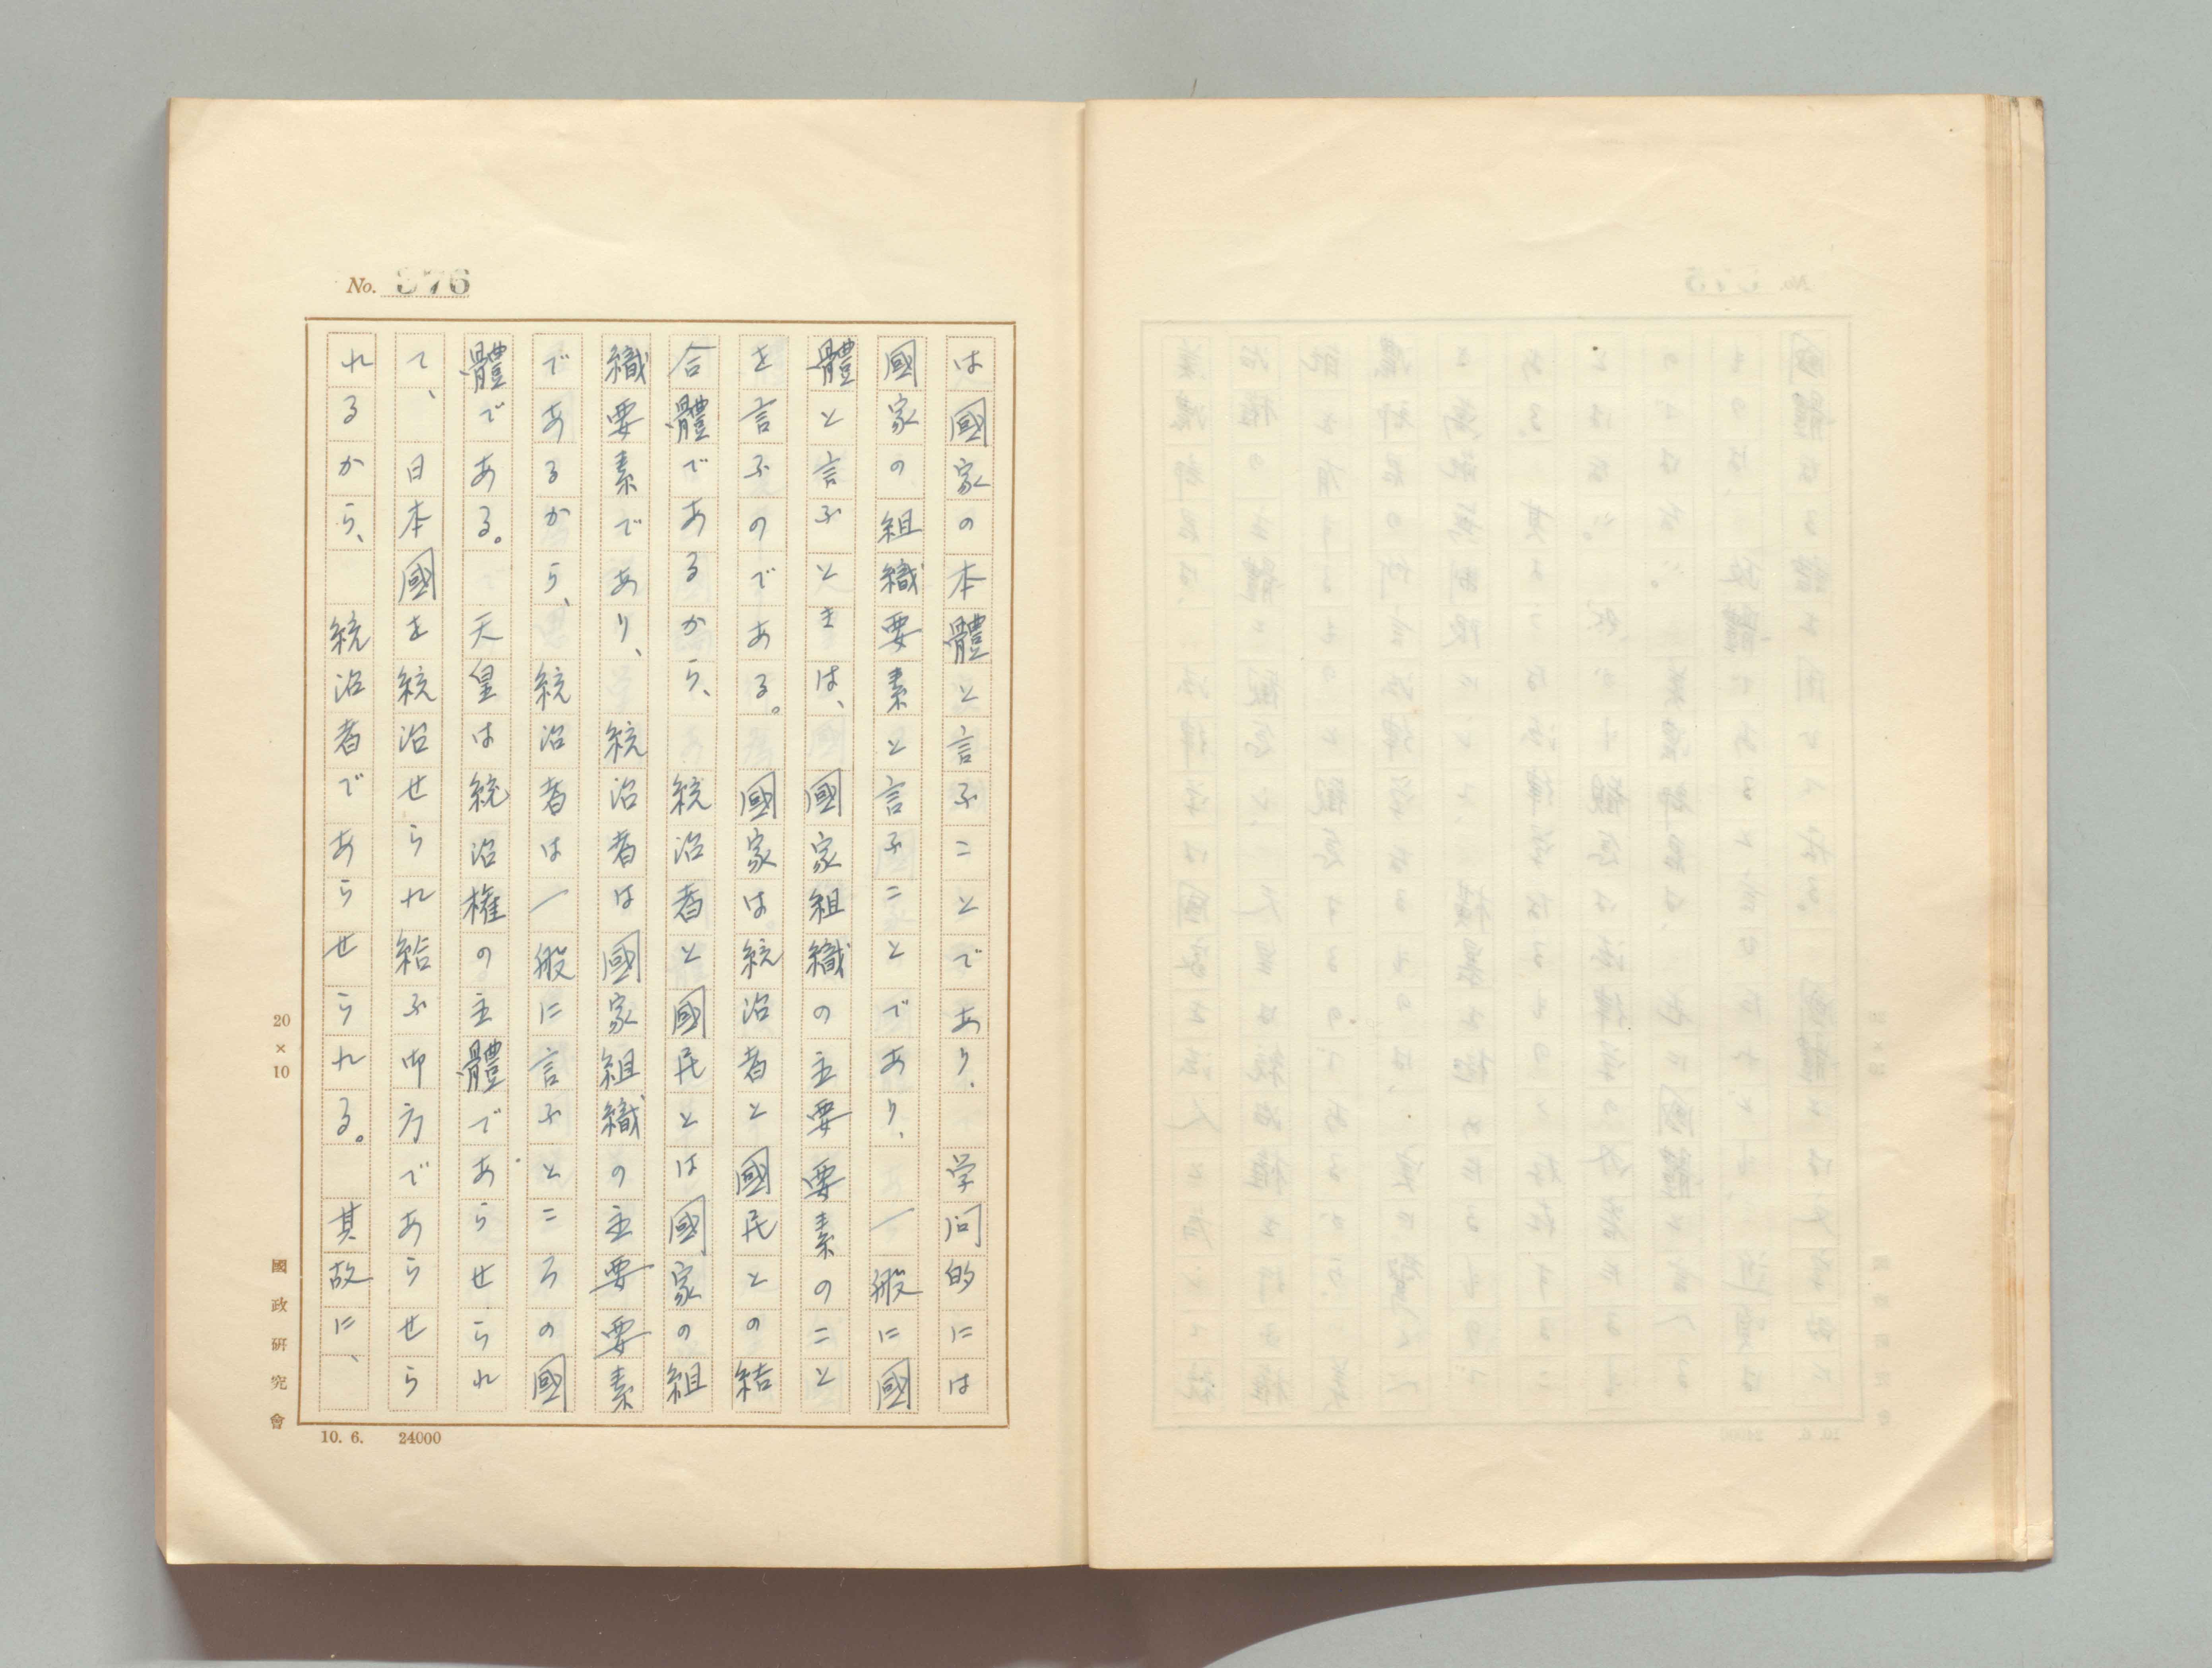 No. 376
は國家の本體と言ふことであり、　学问的には
國家の組織要素と言ふことであり、　一般に國
體と言ふときは、　國家組織の主要要素のこと
を言ふのである。　國家は統治者と國民との結
合體であるから、　統治者と國民とは國家の組
織要素であり、　統治者は國家組織の主要要素
であるから、　統治者は一般に言ふところの國
體である。　天皇は統治権の主體であらせられ
て、　日本國を統治せられ給ふ御方であらせら
れるから、　統治者であらせられる。　其故に、
20×10
國政研究會
10. 6.　24000